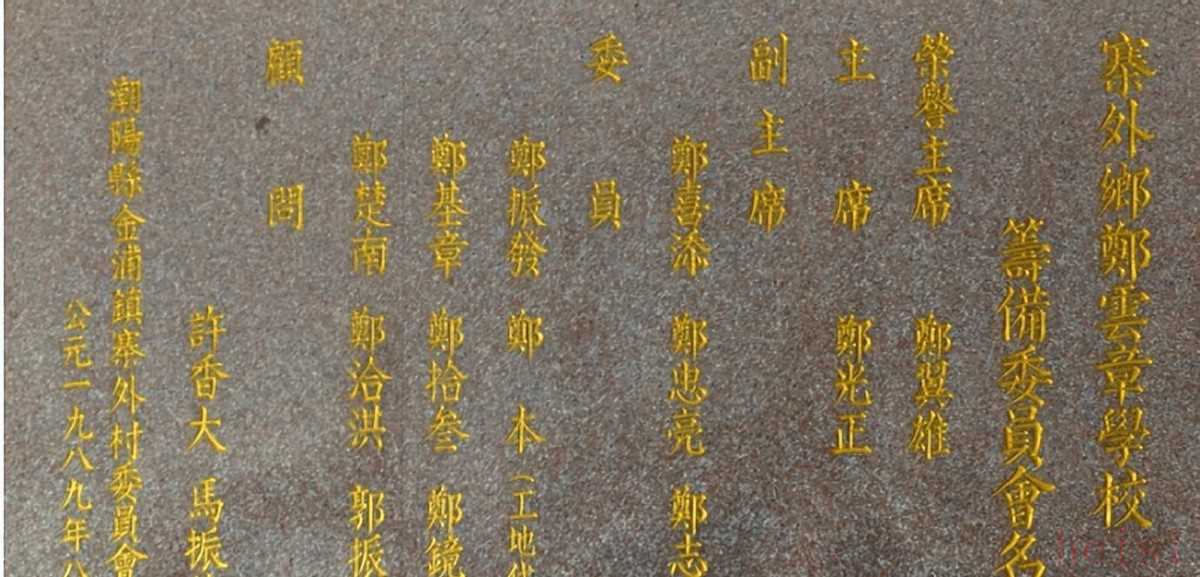 寨外鄉鄭雲章學校
籌備委員會名
榮譽主席 鄭翼雄
主席 鄭光正
副主席
鄭喜添 鄭忠亮 鄭志
委員
鄭振發 鄭本(工地
鄭基章 鄭拾叁 鄭鏡
鄭楚南 鄭洽洪 郭振
顧問
許香大 馬振
潮陽縣金浦鎮寨外村委員會
公元一九八九年八